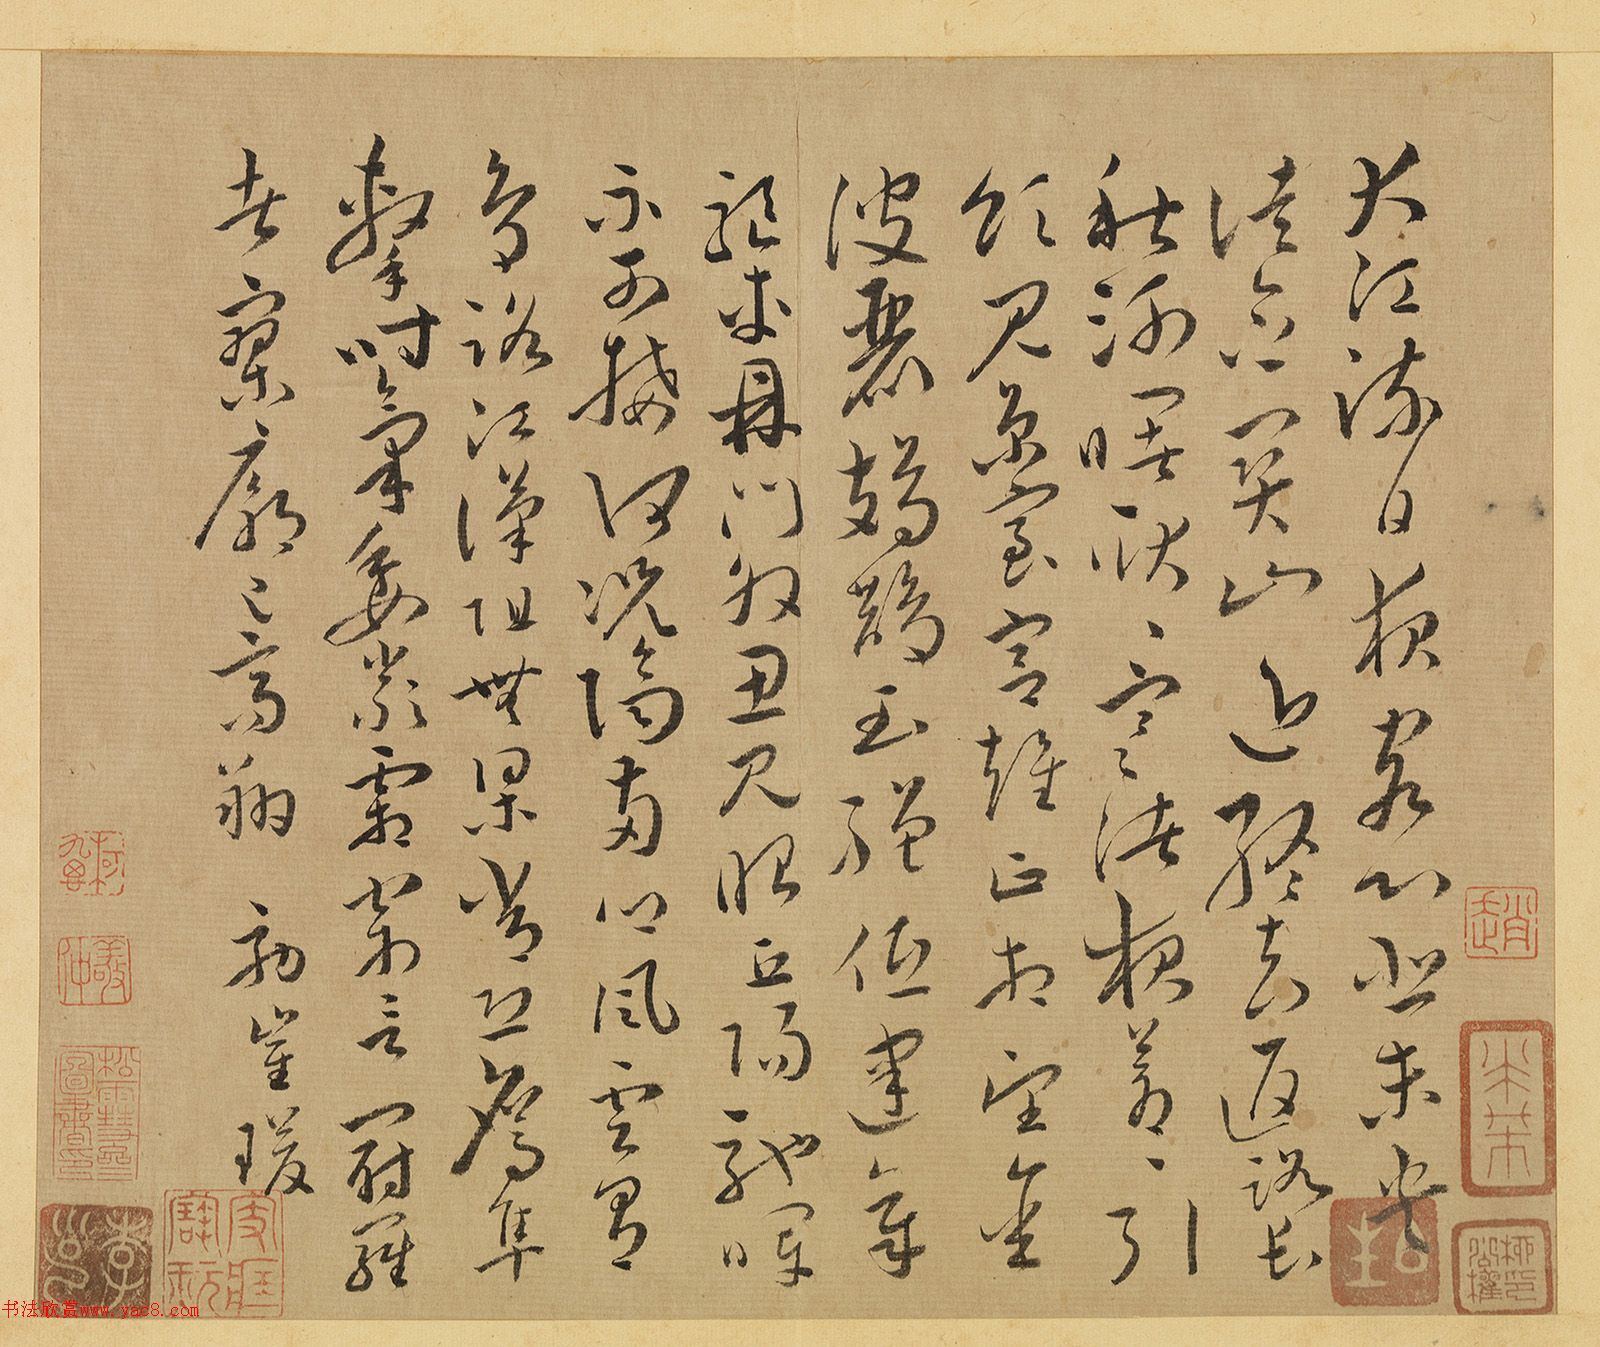 大江流日夜客心悲未央
徒念關山近終知返路長
秋河曙耿〻寒渚夜蒼〻引
領見京室宮雉正相望金
波麗鳷鵲玉繩低建章
驅車鼎門外思見昭丘陽馳暉
不可接何況隔兩鄉風雲有
鳥路江漢阻無梁常恐鷹隼
擊時菊委嚴霜寄言罻羅
者寥廓已高翔 効崔瑗
趙
书法欣赏www.yac8.com